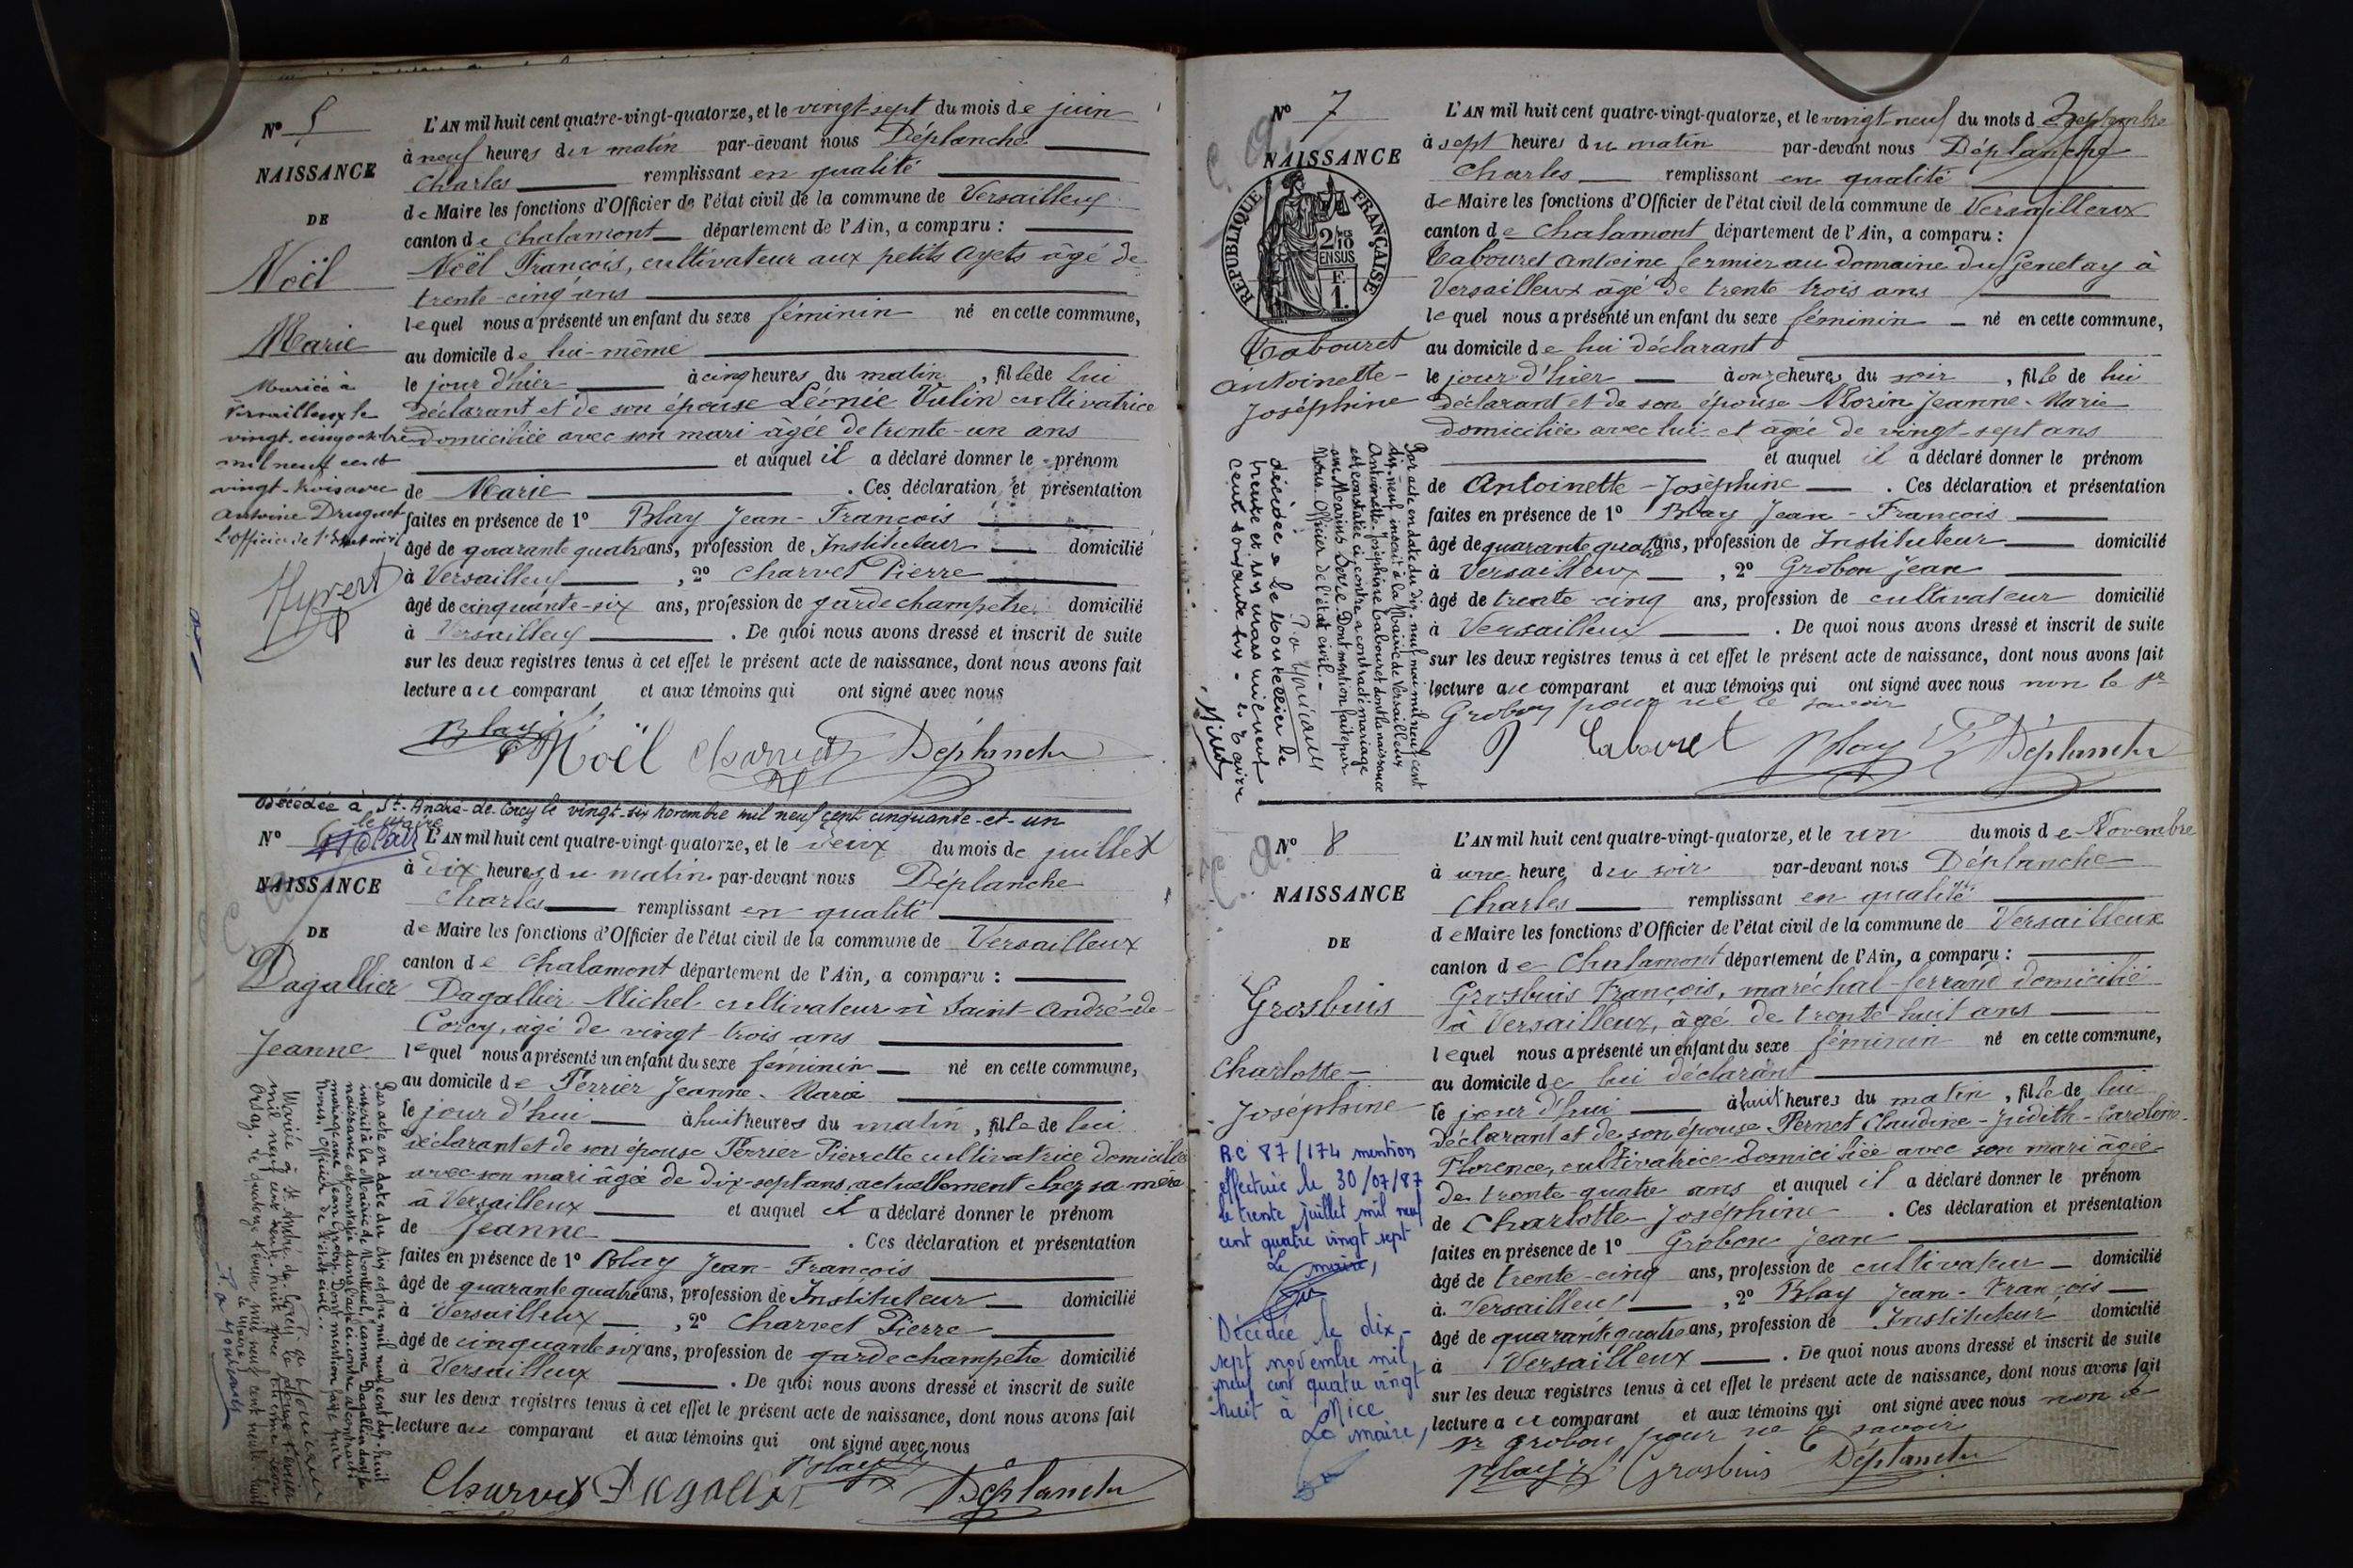 N° 5
NAISSANCE
DE
Noël
Marie
Mariée à
Versailleux le
vingt-cinq octobre
mil neuf cent
vingt-trois avec
Antoine Druguet
L'officier de l'Etat civil
Hyvert
L'AN mil huit cent quatre-vingt-quatorze, et le vingt-sept du mois de juin
à neuf heures du matin par-devant nous Déplanche
Charles remplissant en qualité
de Maire les fonctions d'Officier de l'état civil de la commune de Versailleux
canton de Chalamont département de l'Ain, a comparu :
Noël François, cultivateur aux petits Ayets âgé de
trente-cinq ans
lequel nous a présenté un enfant du sexe féminin né en cette commune,
au domicile de lui-même
le jour d'hier à cinq heures du matin, fille de lui
déclarant et de son épouse Léonie Vulin cultivatrice
domiciliée avec son mari âgée de trente-un ans
et auquel il a déclaré donner le prénom
de Marie. Ces déclaration et présentation
faites en présence de 1° Blay Jean-François
âgé de quarante quatre ans, profession de Instituteur domicilié
à Versailleux, 2° Charvet Pierre
âgé de cinquante-six ans, profession de garde champêtre domicilié
à Versailleux. De quoi nous avons dressé et inscrit de suite
sur les deux registres tenus à cet effet le présent acte de naissance, dont nous avons fait
lecture au comparant et aux témoins qui ont signé avec nous
Blay Noël Charvet Déplanche
Décédée à St-André-de-Corcy le vingt-six novembre mil neuf cent cinquante-et-un
le Maire
N°
NAISSANCE
DE
Dagallier
Jeanne
L'AN mil huit cent quatre-vingt-quatorze, et le deux du mois de juillet
à dix heures du matin par-devant nous Déplanche
Charles remplissant en qualité
de Maire les fonctions d'Officier de l'état civil de la commune de Versailleux
canton de Chalamont département de l'Ain, a comparu :
Dagallier Michel cultivateur à Saint-André-de-
Corcy, âgé de vingt-trois ans
lequel nous a présenté un enfant du sexe féminin né en cette commune,
au domicile de Ferrier Jeanne-Marie
le jour d'hui à huit heures du matin, fille de lui
déclarant et de son épouse Ferrier Pierrette cultivatrice domiciliée
avec son mari âgée de dix-sept ans, actuellement chez sa mère
à Versailleux et auquel il a déclaré donner le prénom
de Jeanne. Ces déclaration et présentation
faites en présence de 1° Blay Jean-François
âgé de quarante quatre ans, profession de Instituteur domicilié
à Versailleux, 2° Charvet Pierre
âgé de cinquante six ans, profession de garde champêtre domicilié
à Versailleux. De quoi nous avons dressé et inscrit de suite
sur les deux registres tenus à cet effet le présent acte de naissance, dont nous avons fait
lecture au comparant et aux témoins qui ont signé avec nous
Charvet Dagallier Blay Déplanche
Par acte en date du dix octobre mil neuf cent dix-huit
inscrit à la Mairie de Montluel, Jeanne Dagallier dont la
naissance est constatée dans l'acte ci-contre a contracté
mariage avec Jean Gros. Dont mention faite par
Nous, Officier de l'état civil.
N° 7
NAISSANCE
RÉPUBLIQUE FRANÇAISE
2/10
EN SUS
E.
1.
Tabouret
Antoinette-
Joséphine
Par acte en date du dix-neuf mai mil neuf cent
dix-neuf inscrit à la Mairie de Versailleux
Antoinette-Joséphine Tabouret dont la naissance
est constatée ci-contre a contracté mariage
avec Marius. Dont mention faite par
Nous Officier de l'état civil.
décédée à
trente et un mars mil neuf
cent soixante dix
L'AN mil huit cent quatre-vingt-quatorze, et le vingt-neuf du mois de Septembre
à sept heures du matin par-devant nous Déplanche
Charles remplissant en qualité
de Maire les fonctions d'Officier de l'état civil de la commune de Versailleux
canton de Chalamont département de l'Ain, a comparu :
Tabouret Antoine fermier au domaine du Genetay à
Versailleux âgé de trente trois ans
lequel nous a présenté un enfant du sexe féminin né en cette commune,
au domicile de lui déclarant
le jour d'hier à onze heures du soir, fille de lui
déclarant et de son épouse Morin Jeanne-Marie
domiciliée avec lui et âgée de vingt-sept ans
et auquel il a déclaré donner le prénom
de Antoinette-Joséphine. Ces déclaration et présentation
faites en présence de 1° Blay Jean-François
âgé de quarante quatre ans, profession de Instituteur domicilié
à Versailleux, 2° Grobon Jean
âgé de trente cinq ans, profession de cultivateur domicilié
à Versailleux. De quoi nous avons dressé et inscrit de suite
sur les deux registres tenus à cet effet le présent acte de naissance, dont nous avons fait
lecture au comparant et aux témoins qui ont signé avec nous non le Sr
Grobon pour ne le savoir
Tabouret Blay Déplanche
N° 8
NAISSANCE
DE
Grosbuis
Charlotte-
Joséphine
RC 87/174 mention
effectuée le 30/07/87
le trente juillet mil neuf
cent quatre vingt sept
Le maire,
Décédée le dix-
sept novembre mil
neuf cent quatre vingt
huit à Nice
Le maire,
L'AN mil huit cent quatre-vingt-quatorze, et le un du mois de Novembre
à une heure du soir par-devant nous Déplanche
Charles remplissant en qualité
de Maire les fonctions d'Officier de l'état civil de la commune de Versailleux
canton de Chalamont département de l'Ain, a comparu :
Grosbuis François, maréchal-ferrand domicilié
à Versailleux, âgé de trente-huit ans
lequel nous a présenté un enfant du sexe féminin né en cette commune,
au domicile de lui déclarant
le jour d'hui à huit heures du matin, fille de lui
déclarant et de son épouse Pernet Claudine-Judith-Caroline-
Florence, cultivatrice domiciliée avec son mari âgée
de trente-quatre ans et auquel il a déclaré donner le prénom
de Charlotte-Joséphine. Ces déclaration et présentation
faites en présence de 1° Grobon Jean
âgé de trente-cinq ans, profession de cultivateur domicilié
à Versailleux, 2° Blay Jean-François
âgé de quarante quatre ans, profession de Instituteur domicilié
à Versailleux. De quoi nous avons dressé et inscrit de suite
sur les deux registres tenus à cet effet le présent acte de naissance, dont nous avons fait
lecture au comparant et aux témoins qui ont signé avec nous non le
Sr Grobon pour ne le savoir
Blay Grosbuis Déplanche